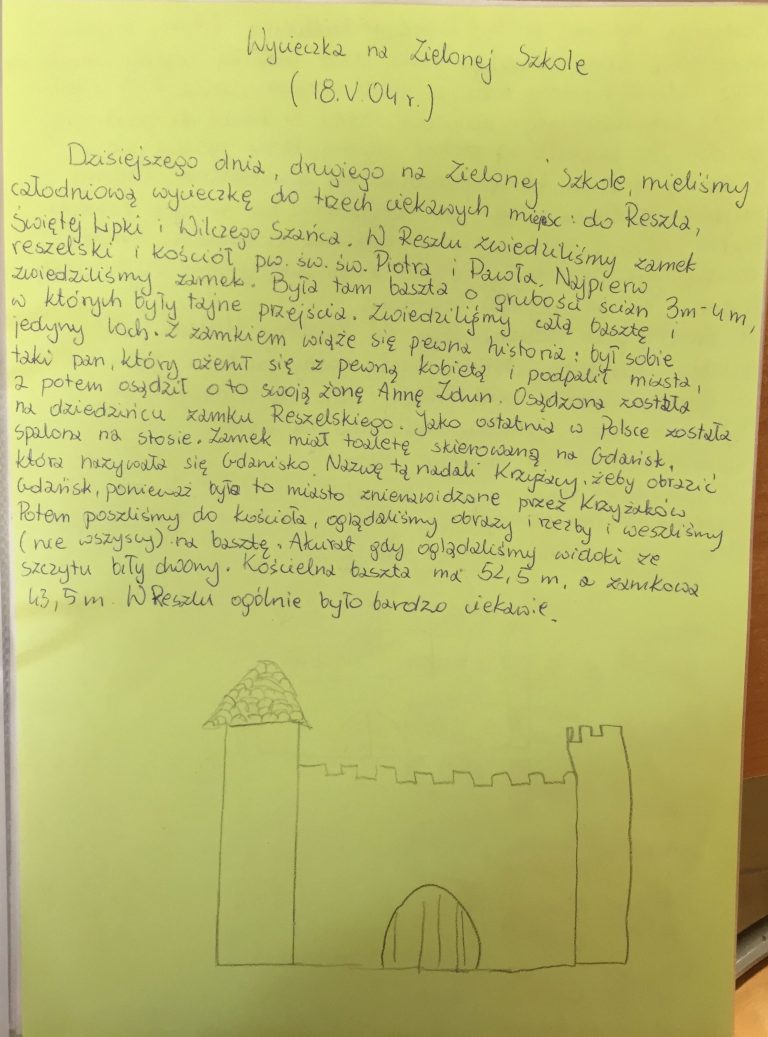 Wycieczka na Zielonej Szkole
(18.V.04 r.)
Dzisiejszego dnia, drugiego na Zielonej Szkole, mieliśmy
całodniową wycieczkę do trzech ciekawych miejsc: do Reszla,
Świętej Lipki i Wilczego Szańca. W Reszlu zwiedziliśmy zamek
reszelski i kościół pw. św. św. Piotra i Pawła. Najpierw
zwiedziliśmy zamek. Była tam baszta o grubości ścian 3m-4m,
w których były tajne przejścia. Zwiedziliśmy całą basztę i
jedyny loch. Z zamkiem wiąże się pewna historia: był sobie
taki pan, który ożenił się z pewną kobietą i podpalił miasta,
a potem osądził o to swoją żonę Annę Zdun. Osądzona została
na dziedzińcu zamku Reszelskiego. Jako ostatnia w Polsce została
spalona na stosie. Zamek miał toaletę skierowaną na Gdańsk,
która nazywała się Gdanisko. Nazwę tą nadali Krzyżacy, żeby obrazić
Gdańsk, ponieważ było to miasto znienawidzone przez Krzyżaków
Potem poszliśmy do kościoła, oglądaliśmy obrazy i rzeźby i weszliśmy
(nie wszyscy) na basztę. Akurat gdy oglądaliśmy widoki ze
szczytu biły dwony. Kościelna baszta ma 52,5 m, a zamkowa
43,5 m. W Reszlu ogólnie było bardzo ciekawie.